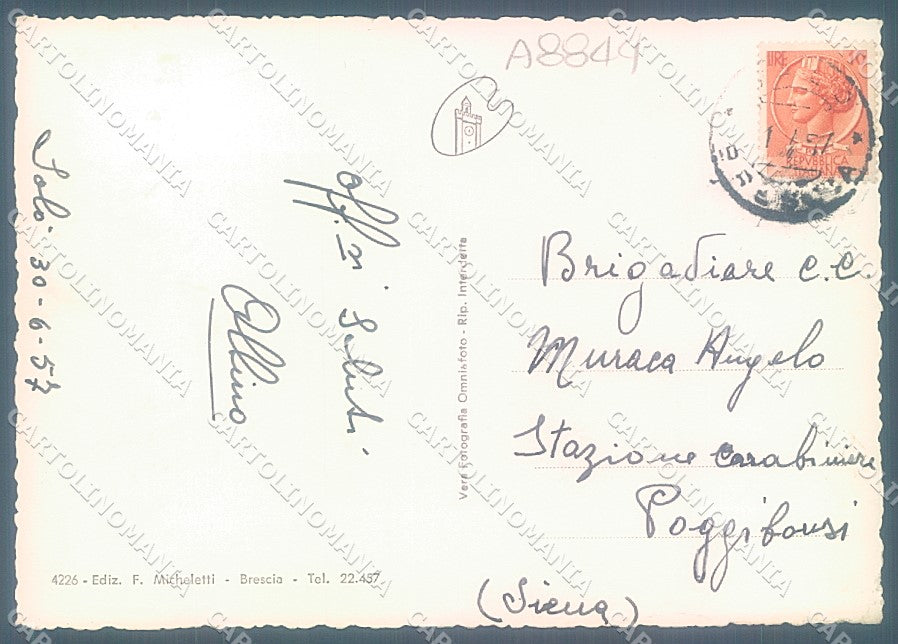 A8849
LIRE 10
REPVBBLICA
ITALIANA
Salò 30-6-57
Aff.zi Saluti.
Albino
Brigadiere C.C.
Muraca Angelo
Stazione Carabiniere
Poggibonsi
(Siena)
Vera Fotografia Omniafoto - Rip. Interdetta
4226 - Ediz. F. Micheletti - Brescia - Tel. 22.457
CARTOLINOMANIA